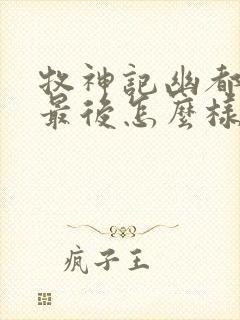 牧神記幽都
最後怎麼樣
疯子王